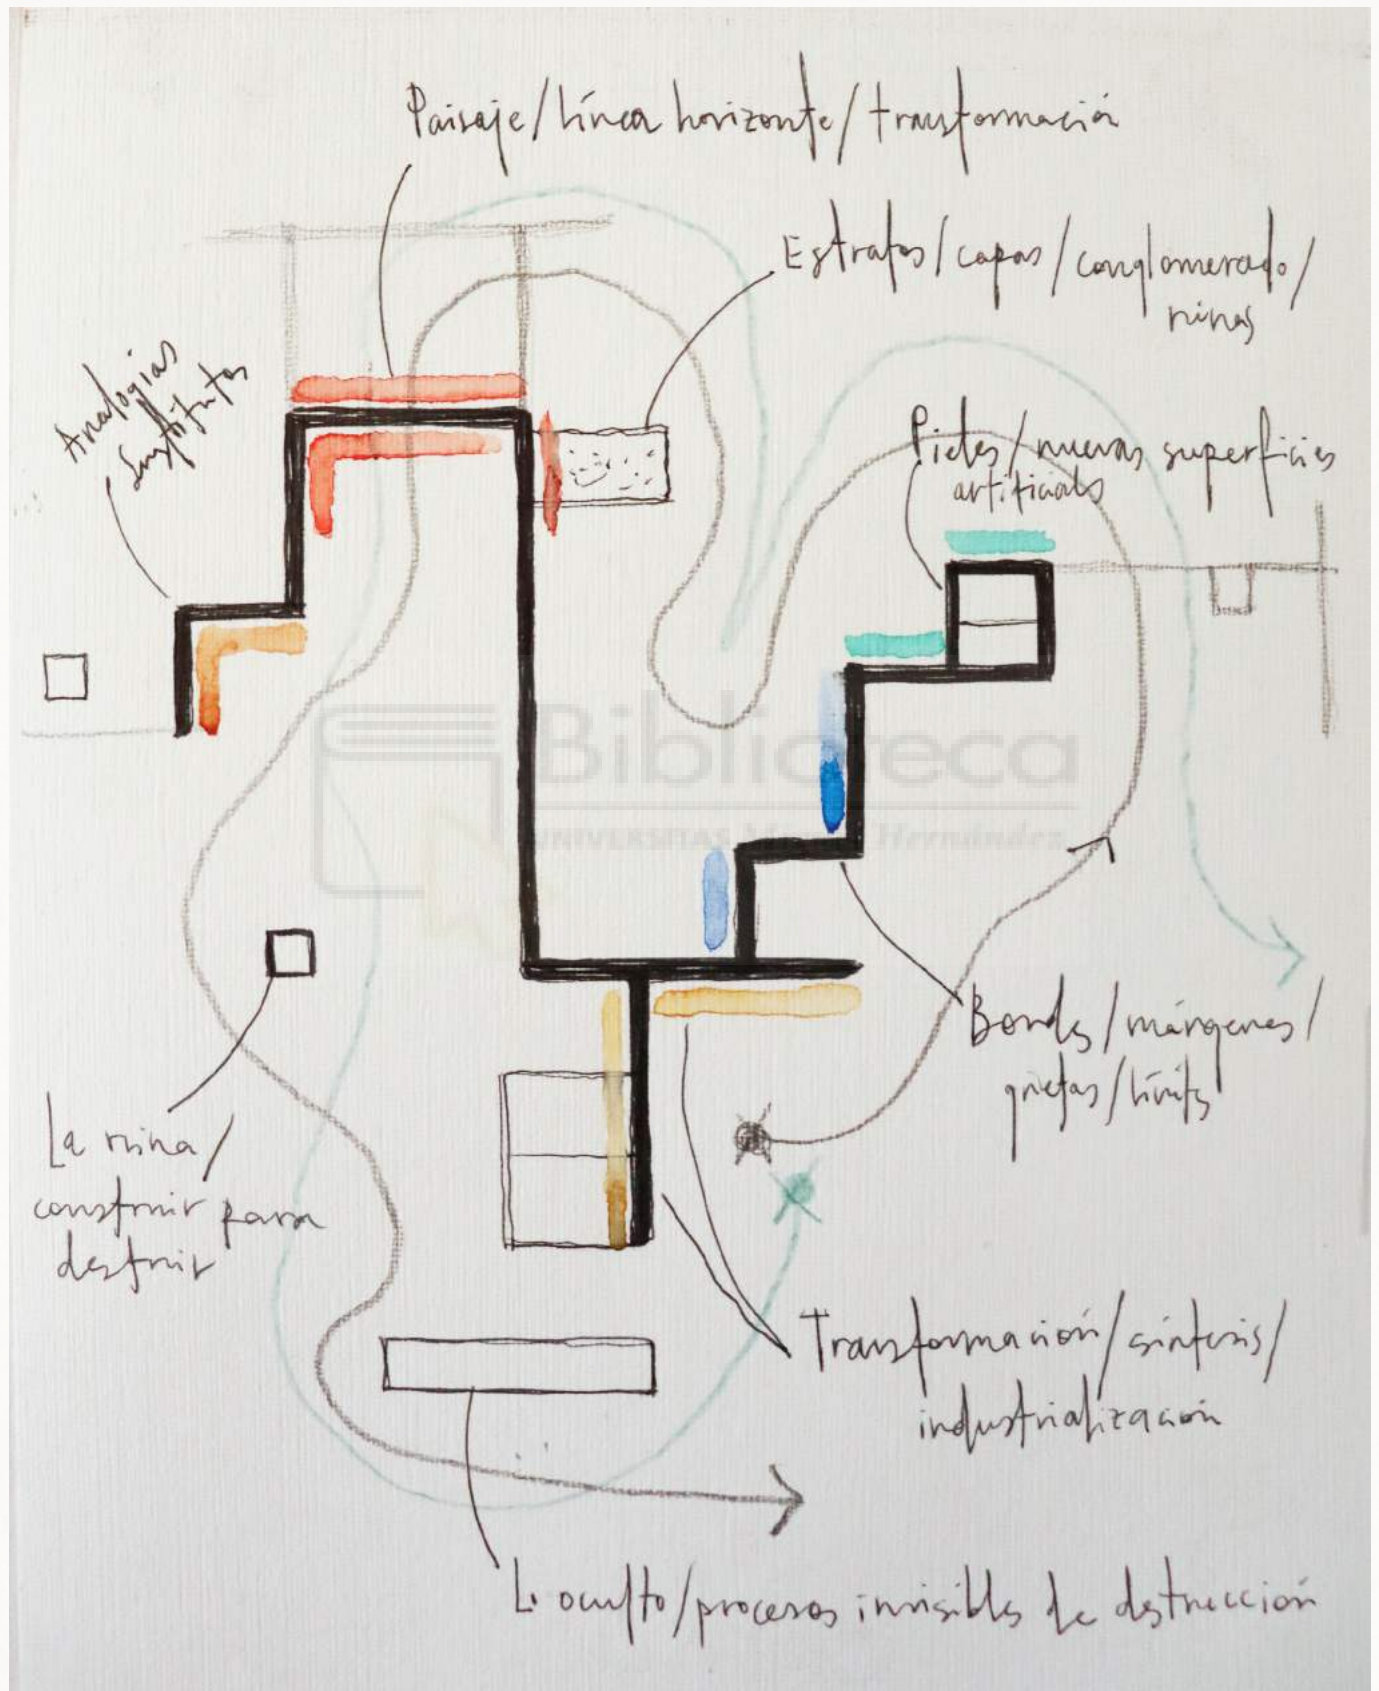 Paisaje/línea horizonte/transformación
Estratos/capas/conglomerado/
ruinas
Analogias
Sustitutos
Pieles/nuevas superficies
artificiales
Biblioteca
UNIVERSITAS Miguel Hernández
Bordes/márgenes/
grietas/límites
La ruina/
construir para
destruir
Transformación/síntesis/
industrialización
Lo oculto/procesos invisibles de destrucción